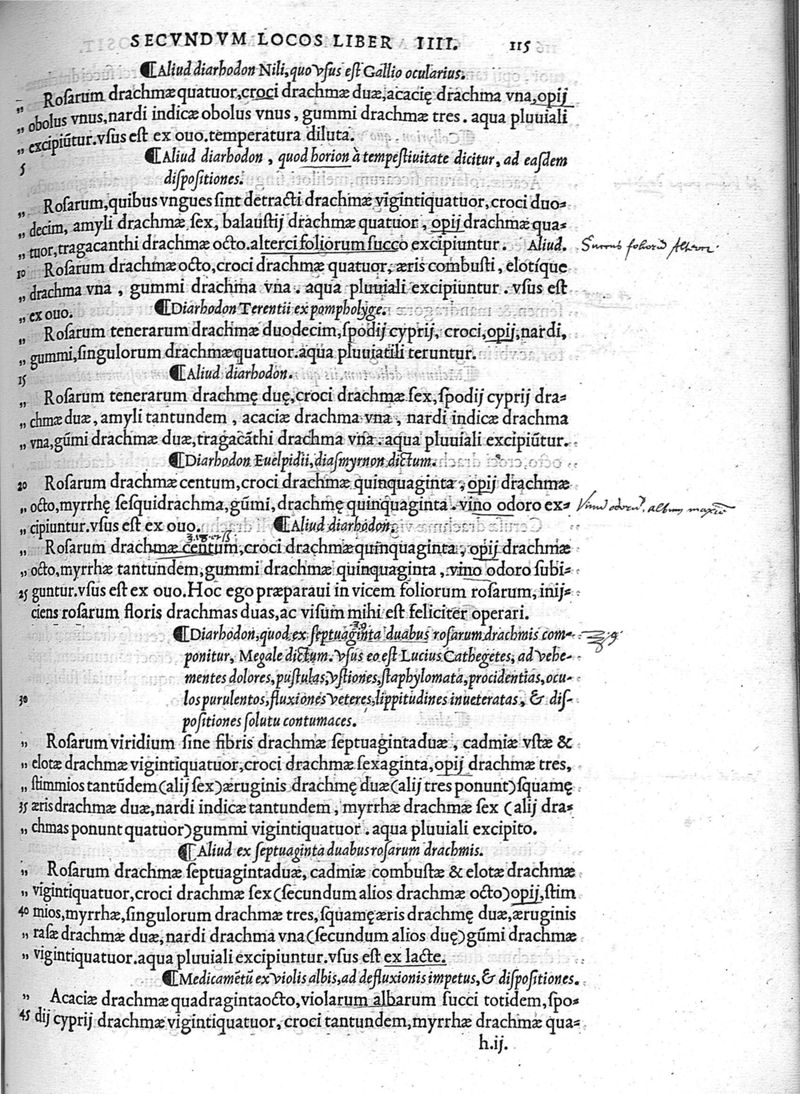 SECVNDVM LOCOS LIBER IIII. 115
¶Aliud diarhodon Nili, quo vſus eſt Gallio ocularius.
„ Roſarum drachmæ quatuor, croci drachmæ duæ, acacię drachma vna, opij
„ obolus vnus, nardi indicæ obolus vnus, gummi drachmæ tres. aqua pluuiali
„ excipiūtur. vſus eſt ex ouo. temperatura diluta.
¶Aliud diarhodon, quod horion à tempeſtiuitate dicitur, ad eaſdem
5 diſpoſitiones.
„ Roſarum, quibus vngues ſint detracti drachmæ vigintiquatuor, croci duo=
„ decim, amyli drachmæ ſex, balauſtij drachmæ quatuor, opij drachmæ qua=
„ tuor, tragacanthi drachmæ octo. alterci foliorum ſucco excipiuntur. Aliud. Succus folioru Alterc.
10 Roſarum drachmæ octo, croci drachmæ quatuor, æris combuſti, elotíque
„ drachma vna, gummi drachma vna. aqua pluuiali excipiuntur. vſus eſt
„ ex ouo. ¶Diarhodon Terentii ex pompholyge.
„ Roſarum tenerarum drachmæ duodecim, ſpodij cyprij, croci, opij, nardi,
„ gummi, ſingulorum drachmæ quatuor. aqua pluuiatili teruntur.
15 ¶Aliud diarhodon.
„ Roſarum tenerarum drachmę duę, croci drachmæ ſex, ſpodij cyprij dra=
„ chmæ duæ, amyli tantundem, acaciæ drachma vna, nardi indicæ drachma
„ vna, gūmi drachmæ duæ, tragacāthi drachma vna. aqua pluuiali excipiūtur.
¶Diarhodon Euelpidii, diaſmyrnon dictum.
20 Roſarum drachmæ centum, croci drachmæ quinquaginta, opij drachmæ
„ octo, myrrhę ſeſquidrachma, gūmi, drachmę quinquaginta. vino odoro ex= album
„ cipiuntur. vſus eſt ex ouo. ¶Aliud diarhodon.
„ Roſarum drachmæ centum, croci drachmæ quinquaginta, opij drachmæ
„ octo, myrrhæ tantundem, gummi drachmæ quinquaginta, vino odoro ſubi=
25 guntur. vſus eſt ex ouo. Hoc ego præparaui in vicem foliorum roſarum, inij=
ciens roſarum floris drachmas duas, ac viſum mihi eſt feliciter operari.
¶Diarhodon, quod ex ſeptuaginta duabus roſarum drachmis com=
ponitur, Megale dictum. vſus eo eſt Lucius Cathegetes, ad vehe=
mentes dolores, puſtulas, vſtiones, ſtaphylomata, procidentias, ocu=
30 los purulentos, fluxiones veteres, lippitudines inueteratas, & diſ=
poſitiones ſolutu contumaces.
„ Roſarum viridium ſine fibris drachmæ ſeptuagintaduæ, cadmiæ vſtæ &
„ elotæ drachmæ vigintiquatuor, croci drachmæ ſexaginta, opij drachmæ tres,
„ ſtimmios tantūdem (alij ſex) æruginis drachmę duæ (alij tres ponunt) ſquamę
35 æris drachmæ duæ, nardi indicæ tantundem, myrrhæ drachmæ ſex (alij dra=
„ chmas ponunt quatuor) gummi vigintiquatuor. aqua pluuiali excipito.
¶Aliud ex ſeptuaginta duabus roſarum drachmis.
„ Roſarum drachmæ ſeptuagintaduæ, cadmiæ combuſtæ & elotæ drachmæ
„ vigintiquatuor, croci drachmæ ſex (ſecundum alios drachmæ octo) opij, ſtim
40 mios, myrrhæ, ſingulorum drachmæ tres, ſquamę æris drachmę duæ, æruginis
„ raſæ drachmæ duæ, nardi drachma vna (ſecundum alios duę) gūmi drachmæ
„ vigintiquatuor. aqua pluuiali excipiuntur. vſus eſt ex lacte.
¶Medicamētū ex violis albis, ad defluxionis impetus, & diſpoſitiones.
„ Acaciæ drachmæ quadragintaocto, violarum albarum ſucci totidem, ſpo=
45 dij cyprij drachmæ vigintiquatuor, croci tantundem, myrrhæ drachmæ qua=
h.ij.